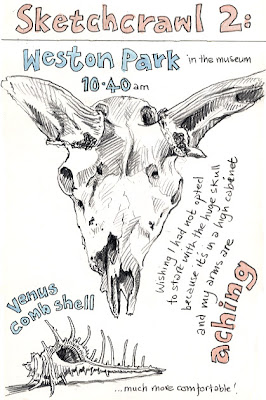 Sketchcrawl 2:
Weston Park in the museum
10.40 am
Wishing I had not opted
to start with the huge skull
because it's in a high cabinet
and my arms are
aching
Venus
comb shell
...much more comfortable!